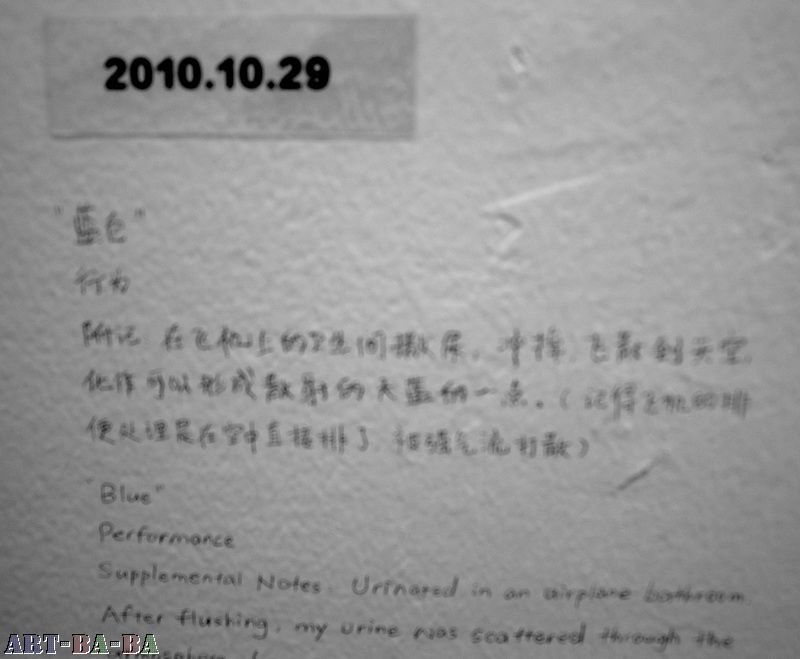 2010.10.29
"蓝色"
行为
附记 在飞机上的卫生间撒尿，冲掉，飞散到天空
化作可以形成散射的天蓝的一点。（记得飞机的排
便处理是在空中直接排了 气流打散）
"Blue"
Performance
Supplemental Notes. Urinared in an airplane bathroom.
After flushing, my urine was scattered through the
ART-BA-BA